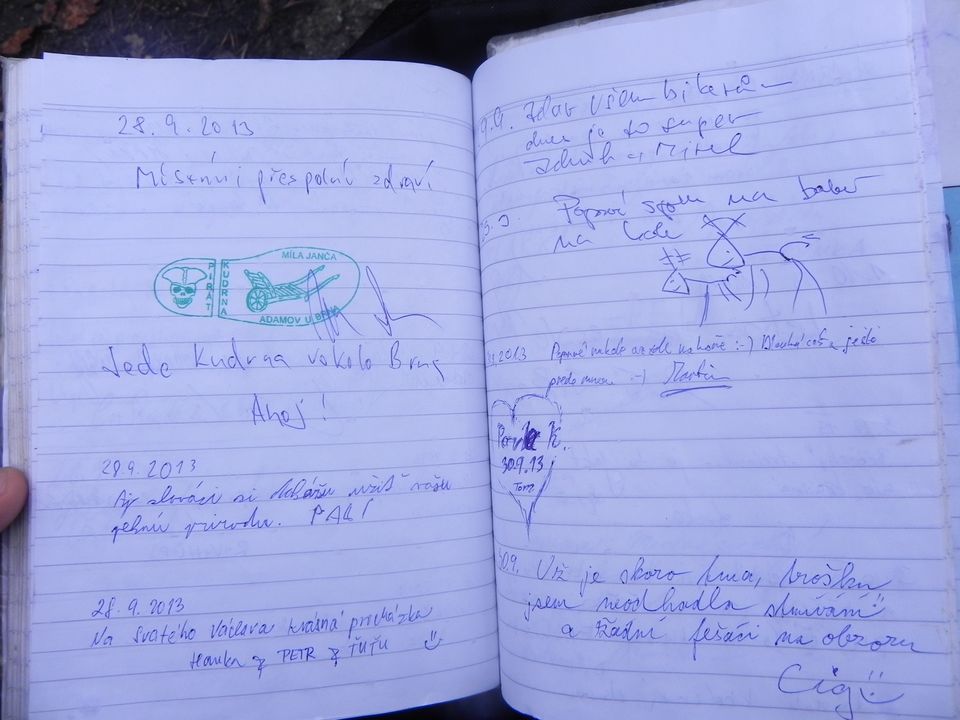 28.9.2013
Místní i přespolní zdraví
PIRÁT
KUDRNA
MÍLA JANČA
ADAMOV U BRNA
Jede Kudrna vůkolo Brna
Ahoj!
28.9.2013
Aj slováci si dokážu užiť vašu
peknú prírodu. PALI
28.9.2013
Na svatého Václava krásná procházka
Hanka PETR ŤUŤU
9.9. Zdar všem bikerům
dnes je to super
Poprvé spolu na
na kole
2013 Poprvé na kole :-) ještě
:-) Martin
K.
30.9.13
Tom
30.9. Už je skoro tma, trošku
jsem neodhadla stmívání
a žádní fešáci na obzoru